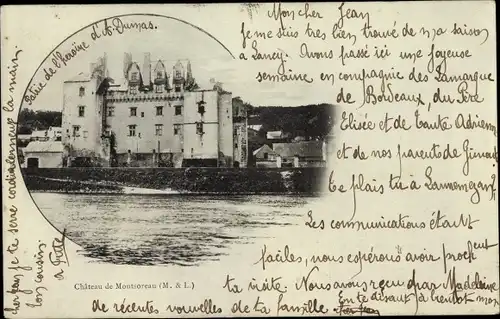 Patrie de l'héroïne d'A. Dumas.
Mon cher Jean
Je me suis très bien trouvé de ma saison
à Lancy. Nous passé ici une joyeuse
semaine en compagnie des Lamarque
de Bordeaux, du Père
Elisée et de tante Adrienne
et de nos parents de
Te plais tu à Lannemezan?
Les communications étant
faciles, nous espérons avoir procht
ta visite. Nous avons reçu par Madeleine
de récentes nouvelles de ta famille
En te disant à bientôt mon
cher Jean je te serre cordialement la main.
ton cousin
Château de Montsoreau (M. & L.)